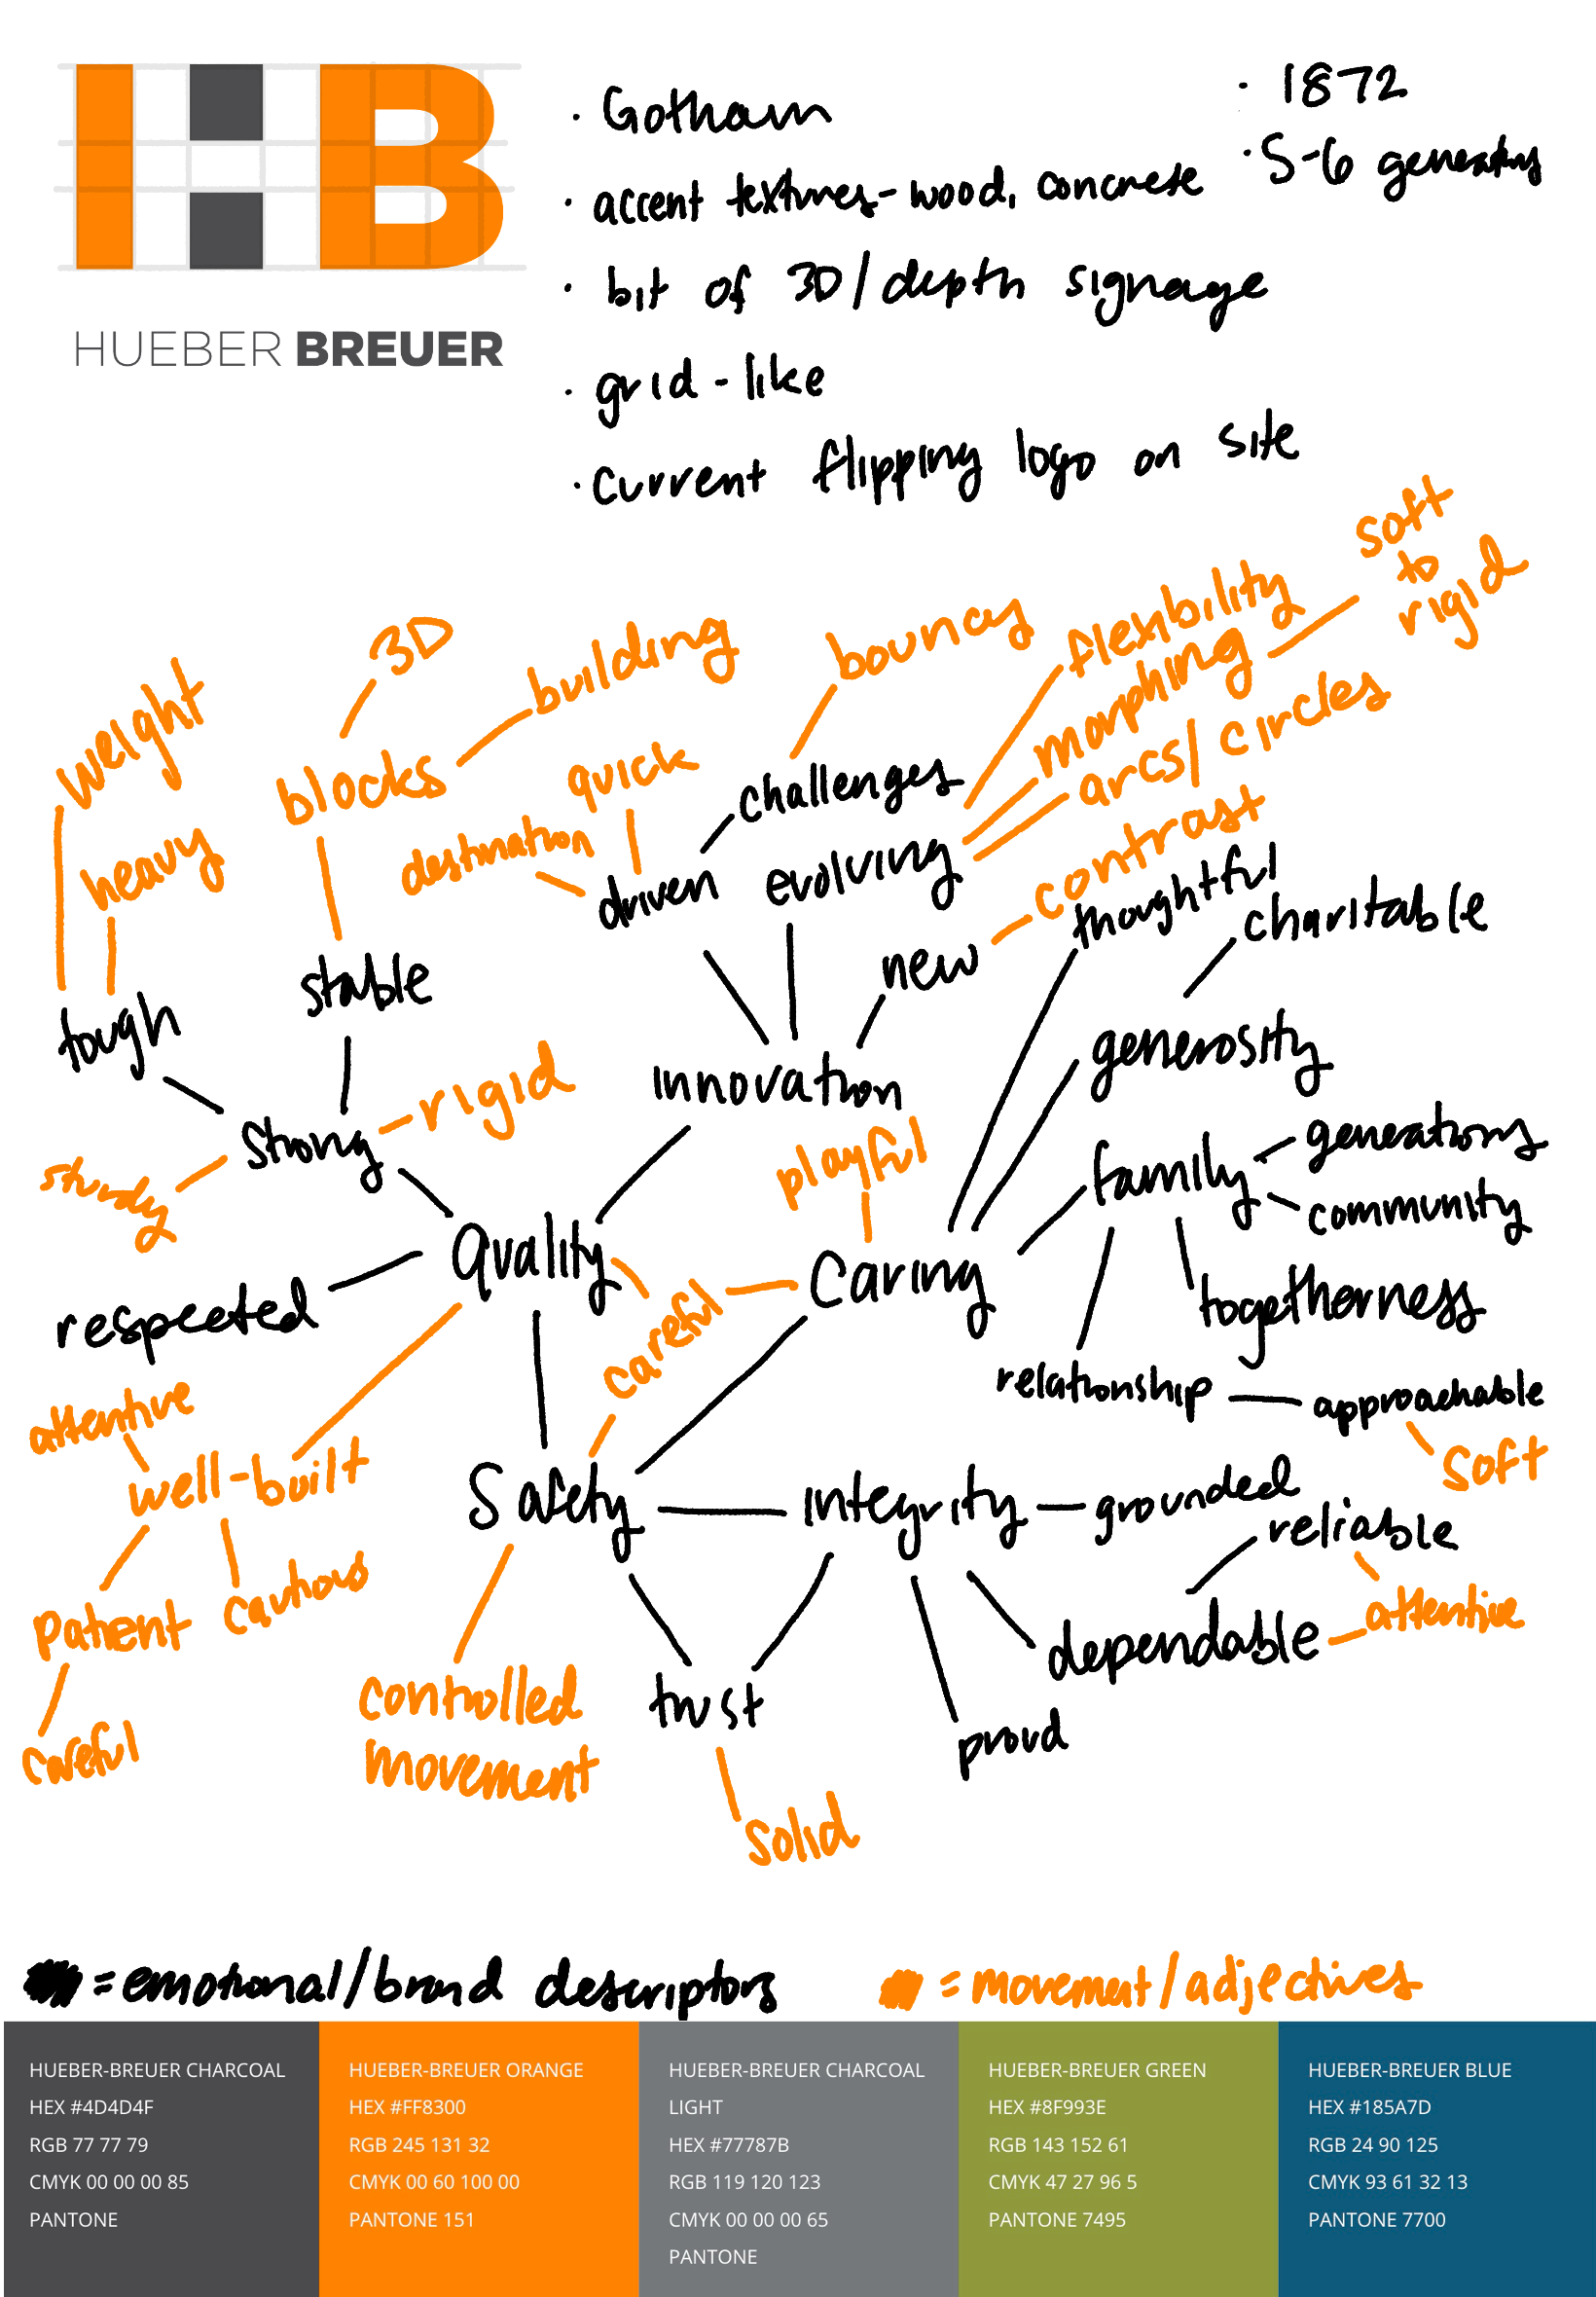 HB
HUEBER BREUER
· Gotham
· accent textures - wood, concrete
· bit of 3D/depth signage
· grid-like
· current flipping logo on site
· 1872
· 5-6 generations
soft
to
rigid
flexibility
morphing
arcs/circles
bouncy
3D
building
weight
blocks
quick
challenges
heavy
destination
driven
evolving
contrast
thoughtful
charitable
new
stable
tough
generosity
innovation
rigid
strong
playful
family
generations
sturdy
community
Quality
Caring
togetherness
respected
careful
relationship
approachable
soft
attentive
well-built
Safety
integrity
grounded
reliable
patient
cautious
attentive
dependable
controlled
movement
trust
proud
careful
solid
= emotional/brand descriptors
= movement/adjectives
HUEBER-BREUER CHARCOAL
HEX #4D4D4F
RGB 77 77 79
CMYK 00 00 00 85
PANTONE
HUEBER-BREUER ORANGE
HEX #FF8300
RGB 245 131 32
CMYK 00 60 100 00
PANTONE 151
HUEBER-BREUER CHARCOAL
LIGHT
HEX #77787B
RGB 119 120 123
CMYK 00 00 00 65
PANTONE
HUEBER-BREUER GREEN
HEX #8F993E
RGB 143 152 61
CMYK 47 27 96 5
PANTONE 7495
HUEBER-BREUER BLUE
HEX #185A7D
RGB 24 90 125
CMYK 93 61 32 13
PANTONE 7700